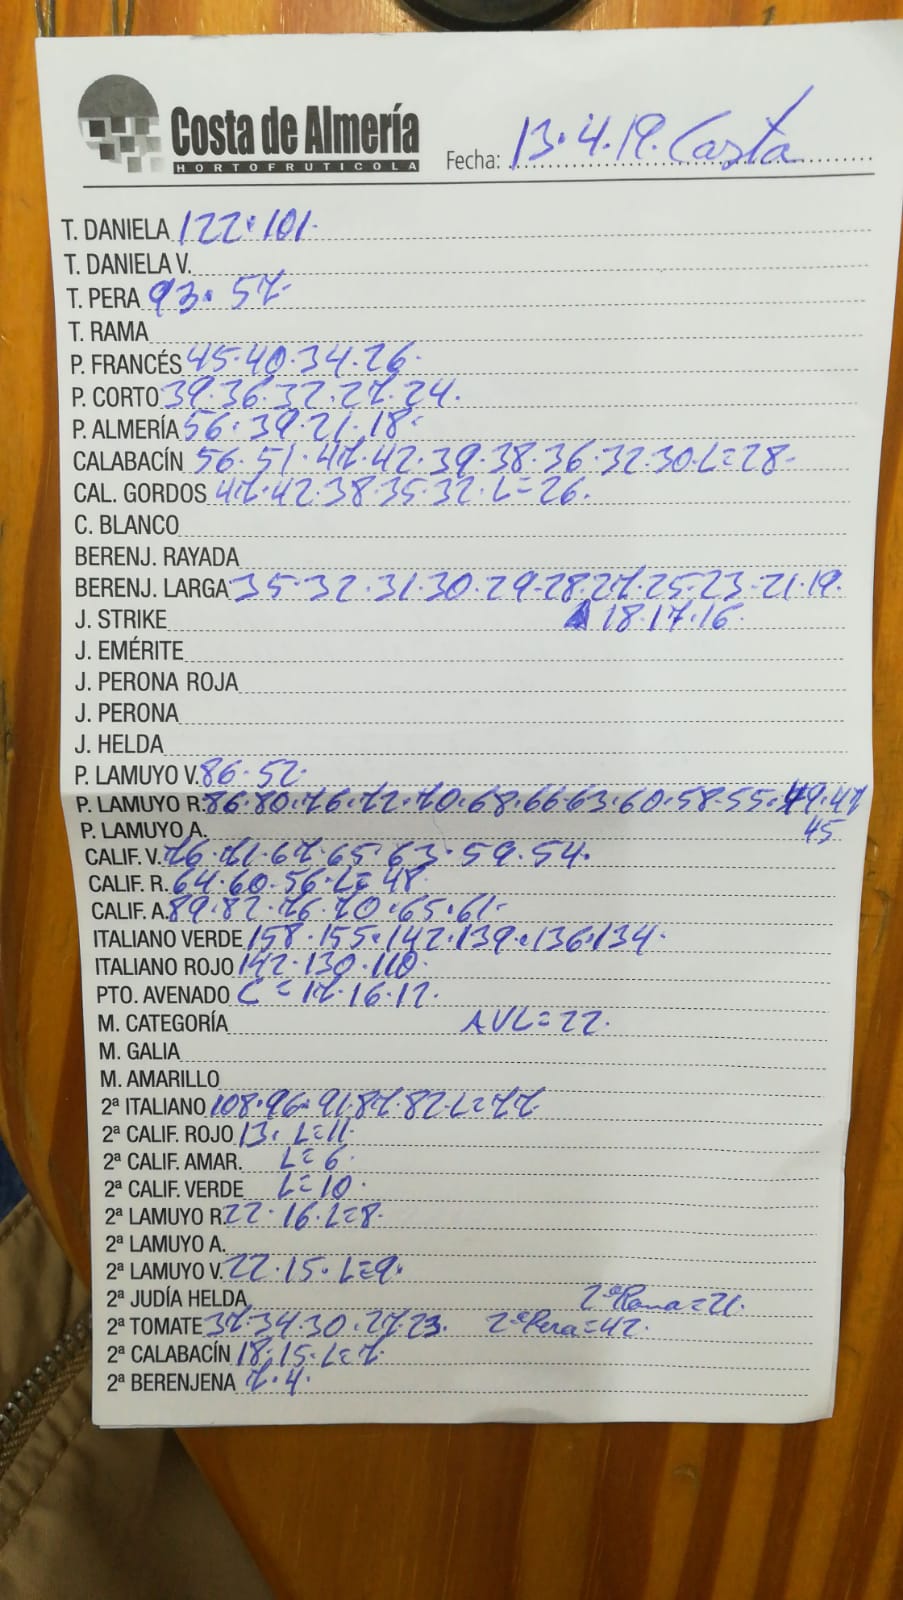 Costa de Almería
HORTOFRUTICOLA
Fecha: 13.4.19. Costa
T. DANIELA 122.101.
T. DANIELA V.
T. PERA 93. 57.
T. RAMA
P. FRANCÉS 45.40.34.26.
P. CORTO 39.36.32.27.24.
P. ALMERÍA 56.39.21.18.
CALABACÍN 56.51.47.42.39.38.36.32.30.L=28.
CAL. GORDOS 47.42.38.35.32.L=26.
C. BLANCO
BERENJ. RAYADA
BERENJ. LARGA 35.32.31.30.29.28.27.25.23.21.19.
J. STRIKE 18.17.16.
J. EMÉRITE
J. PERONA ROJA
J. PERONA
J. HELDA
P. LAMUYO V. 86.52.
P. LAMUYO R. 86.80.76.72.70.68.66.63.60.58.55.49.47
P. LAMUYO A. 45
CALIF. V. 76.71.67.65.63.59.54.
CALIF. R. 64.60.56.L=48
CALIF. A. 89.82.76.70.65.61.
ITALIANO VERDE 158.155.142.139.136.134.
ITALIANO ROJO 142.130.110.
PTO. AVENADO C=17.16.12.
M. CATEGORÍA AVL=22.
M. GALIA
M. AMARILLO
2ª ITALIANO 108.96.91.87.82.L=77.
2ª CALIF. ROJO 13. L=11.
2ª CALIF. AMAR. L=6.
2ª CALIF. VERDE L=10.
2ª LAMUYO R. 22.16.L=8.
2ª LAMUYO A.
2ª LAMUYO V. 22.15.L=9.
2ª JUDÍA HELDA 2ªRama=21.
2ª TOMATE 37.34.30.27.23. 2ªPera=42.
2ª CALABACÍN 18.15.L=7.
2ª BERENJENA 7.4.